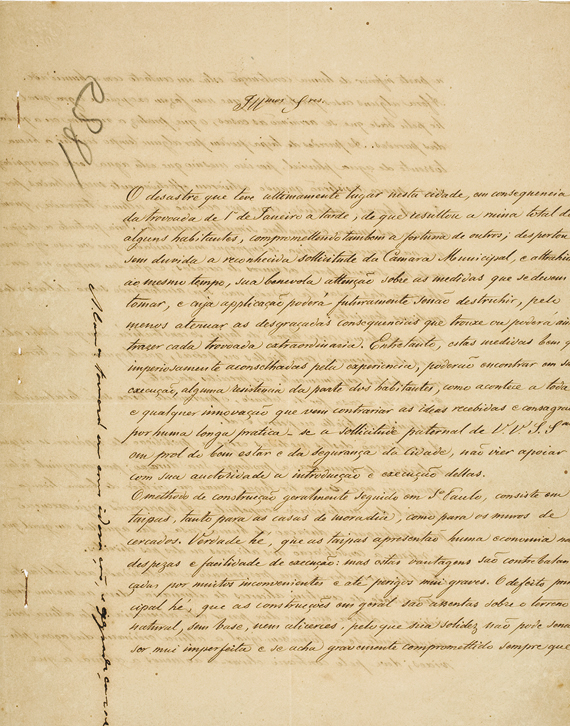 Illmos Sres.
O desastre que teve ultimamente lugar nesta cidade, em consequencia
da trovoada de 1º de Janeiro a tarde, de que resultou a ruina total d
alguns habitantes, comprometendo tambem a fortuna de outros; despertou
sem duvida a reconhecida sollicitude da Camara Municipal, e attrahi
ao mesmo tempo, sua benevola attenção sobre as medidas que se devem
tomar, e cuja applicação poderá futuramente senão destruhir, pelo
menos atenuar as desgraçadas consequencias que trouxe ou poderá ain
trazer cada trovoada extraordinaria. Entretanto, estas medidas bem q
imperiosamente aconselhadas pela experiencia, poderão encontrar em su
execução, alguma resistencia da parte dos habitantes, como acontece a toda
e qualquer innovação que vem contrariar as ideas recebidas e consagra
por huma longa pratica se a sollicitude paternal de V V S. Sas
em prol do bem estar e da segurança da cidade, não vier apoiar
com sua auctoridade a introducção e execução dellas.
O methodo de construcção geralmente seguido em Sº Paulo, consiste em
taipas, tanto para as casas de moradia, como para os muros de
cercados. Verdade hé, que as taipas apresentão huma economia na
despezas e facilidade de execução: mas estas vantagens são contrabalan
çadas por muitos inconvenientes e até perigos mui graves. O defeito prin
cipal hé, que as construcções em geral são assentas sobre o terreno
natural, sem base, nem alicerces; pelo que sua solidez não pode sena
ser mui imperfeita e se acha gravemente compromettido sempre que